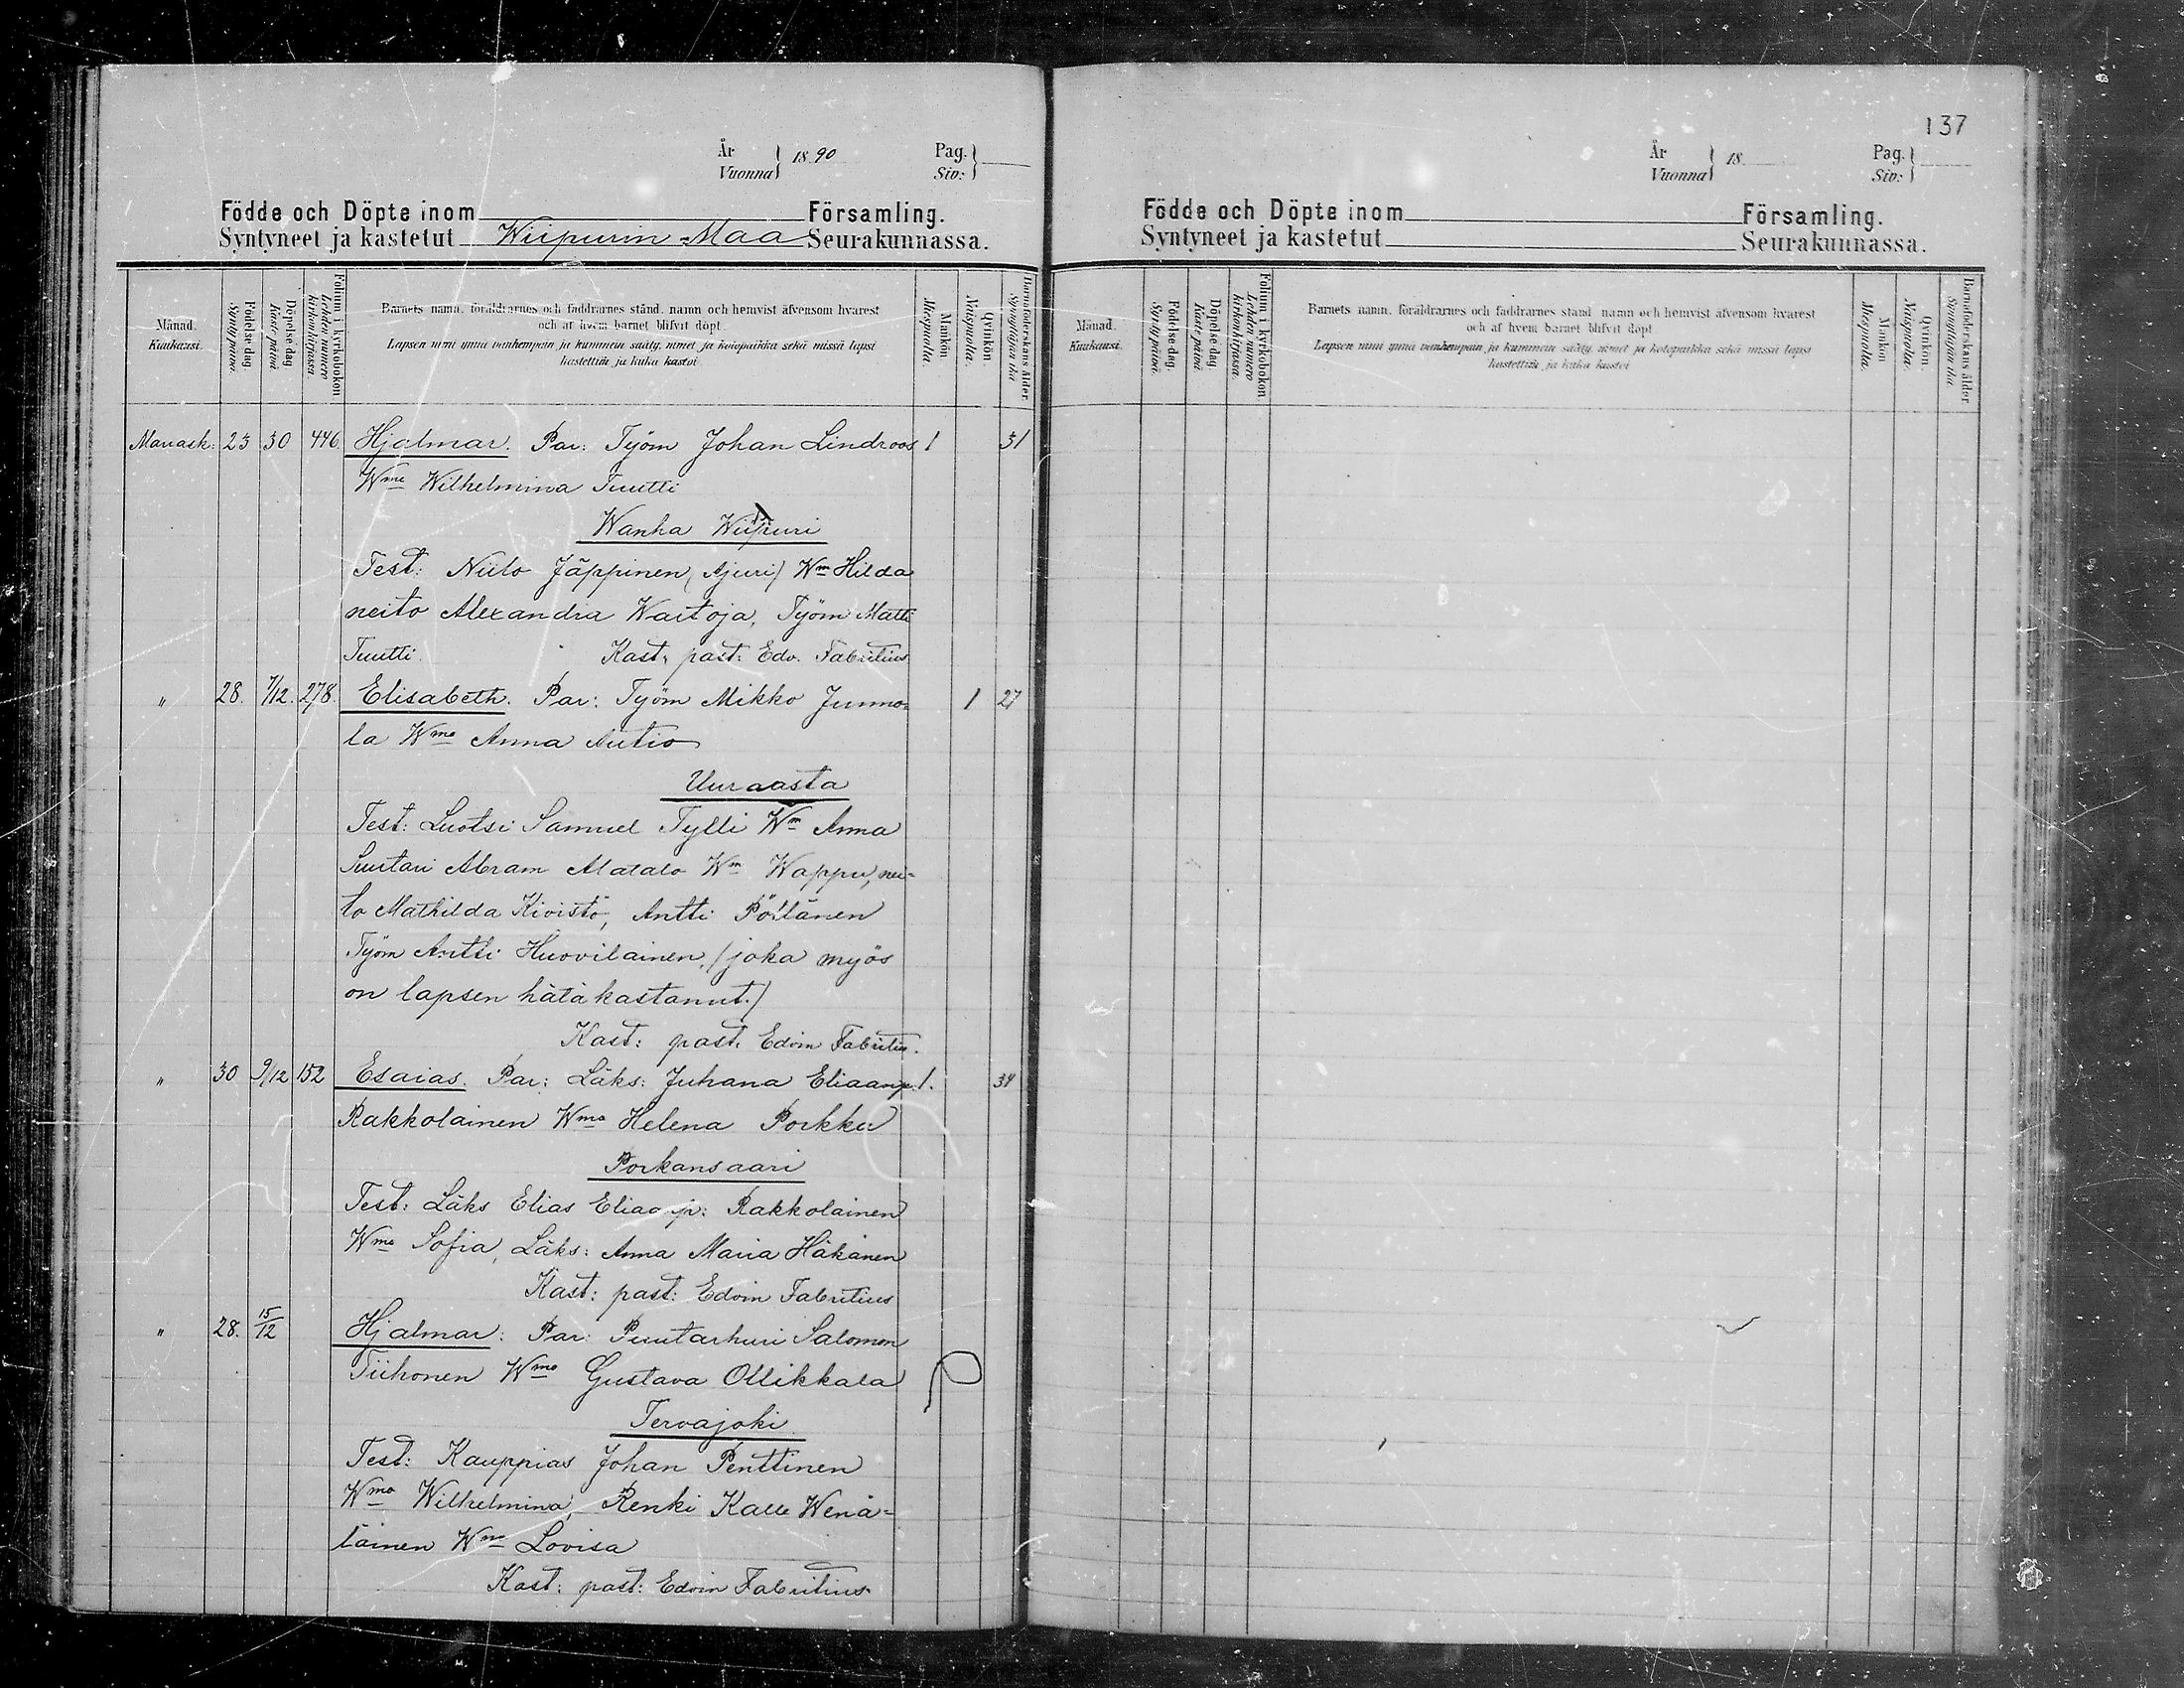 År
Vuonna
1890
Pag.
Siv:
Födde och Döpte inom Församling.
Syntyneet ja kastetut Wiipurin Maa Seurakunnassa.
Månad. Kuukausi.
Födelse dag. Syntypäivä.
Döpelse dag. Kastepäivä.
Folium i kyrkoboken Lehden numero kirkonkirjassa.
Barnets namn, föräldrarnes och faddrarnes stånd, namn och hemvist äfvensom hvarest
och af hvem barnet blifvit döpt.
Lapsen nimi ynnä vanhempain ja kummein sääty, nimet ja kotopaikka sekä missä lapsi
kastettiin ja kuka kastoi.
Mankön Miespuolta.
Qvinkön. Naispuolta.
Barnaföderskans ålder. Synnyttäjän ikä.
Marrask: 23 30 446 Hjalmar. Par: Työm Johan Lindroos 1 31
Wmo Wilhelmina Tuutti
Wanha Wiipuri
Test: Niilo Jäppinen (Ajuri) Wm Hilda
neito Alexandra Wartoja, Työm Matti
Tuutti. Kast. past: Edv. Fabritius
" 28. 7/12. 278. Elisabeth. Par: Työm Mikko Junno= 1 27
la Wmo Anna Autio
Uuraasta
Test: Luotsi Samuel Tylli Wm Anna
Suutari Abram Alatalo Wm Wappu, nei=
to Mathilda Kivistö, Antti Pöllänen
Työm Antti Huovilainen, (joka myös
on lapsen hätäkastanut.)
Kast: past: Edvin Fabritius.
" 30 9/12 152 Esaias. Par: Läks: Juhana Eliaanp. 1. 34
Rakkolainen Wmo Helena Porkka
Porkansaari
Test: Läks Elias Eliaanp: Rakkolainen
Wmo Sofia, Läks: Anna Maria Häkänen
Kast: past: Edvin Fabritius
" 28. 15/12 Hjalmar: Par: Puutarhuri Salomon
Tiihonen Wmo Gustava Ollikkala
Tervajoki
Test: Kauppias Johan Penttinen
Wmo Wilhelmina, Renki Kalle Wenä=
läinen Wmo Lovisa
Kast: past: Edvin Fabritius
137
År
Vuonna
18
Pag.
Siv:
Födde och Döpte inom Församling.
Syntyneet ja kastetut Seurakunnassa.
Månad. Kuukausi.
Födelse dag. Syntypäivä.
Döpelse dag. Kastepäivä.
Folium i kyrkoboken Lehden numero kirkonkirjassa.
Barnets namn, föräldrarnes och faddrarnes stånd, namn och hemvist äfvensom hvarest
och af hvem barnet blifvit döpt
Lapsen nimi ynnä vanhempain ja kummein sääty, nimet ja kotopaikka sekä missä lapsi
kastettiin ja kuka kastoi
Mankön Miespuolta.
Qvinkön. Naispuolta.
Barnaföderskans ålder. Synnyttäjän ikä.